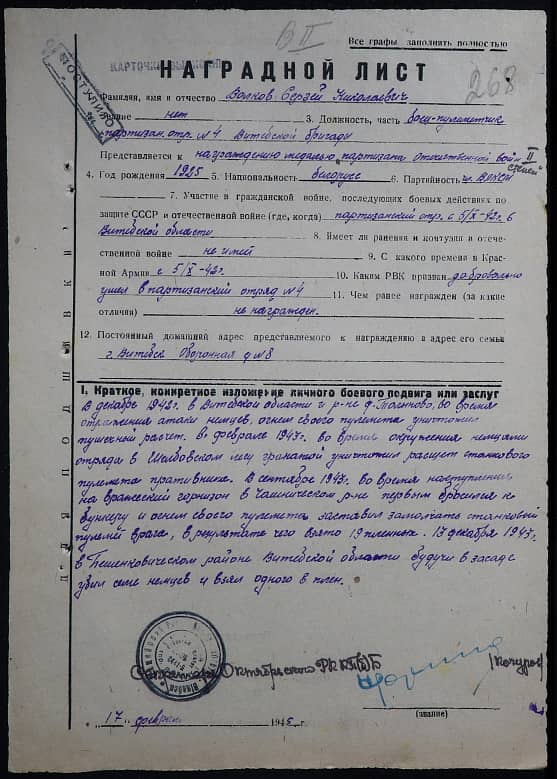 В II
Все графы заполнять полностью
ПОСТУПИЛО
КАРТОЧКИ
268
НАГРАДНОЙ ЛИСТ
Фамилия, имя и отчество Волков Сергей Николаевич
Звание нет 3. Должность, часть боец-пулеметчик
партизан. отр. №4 Витебской бригады
Представляется к награждению медалью партизана Отечественной войн II степени
4. Год рождения 1925 5. Национальность белорусс 6. Партийность чл. ВЛКСМ
7. Участие в гражданской войне, последующих боевых действиях по
защите СССР и отечественной войне (где, когда) партизанский отр. с 5/X-42г. в
Витебской области 8. Имеет ли ранения и контузия в отече-
ственной войне не имеет 9. С какого времени в Крас-
ной Армии с 5/X-42г. 10. Каким РВК призван добровольно
ушел в партизанский отряд №4 11. Чем ранее награжден (за какие
отличия) не награжден.
12. Постоянный домашний адрес представляемого к награждению и адрес его семьи
г. Витебск Оборонная д №8
ДЛЯ ПОДШИВКИ
I. Краткое, конкретное изложение личного боевого подвига или заслуг
В декабре 1942г. в Витебской области и р-не д. во время
отражения атаки немцев, огнем своего пулемета уничтожил
пушечный расчет. В феврале 1943г. во время окружения немцами
отряда в лесу гранатой уничтожил расчет станкового
пулемета противника. В сентябре 1943г. во время наступления
на вражеский гарнизон в Чашническом р-не первым бросился к
бункеру и огнем своего пулемета заставил замолчать станковый
пулемет врага, в результате чего взято 19 пленных. 13 декабря 1943г.
в Бешенковическом районе Витебской области будучи в засаде
убил семь немцев и взял одного в плен.
Секретарь Октябрьского РК КП(б)Б
(звание)
"17" февраля 1945 г